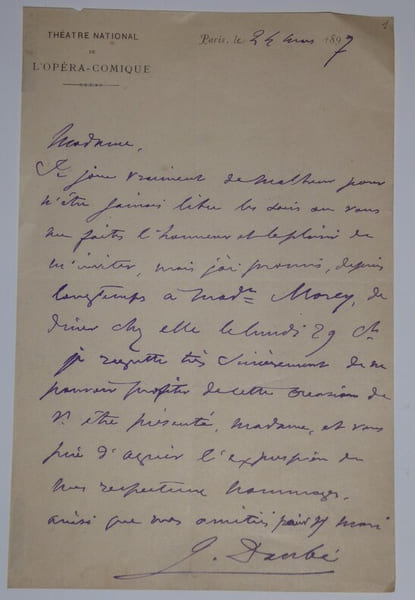 THÉATRE NATIONAL
DE
L'OPÉRA-COMIQUE
Paris, le 24 mars 1897
Madame,
Je joue vraiment de malheur pour
n'être jamais libre les soirs où vous
me faites l'honneur et le plaisir de
m'inviter, mais j'ai promis, depuis
longtemps à Madme Morey, de
dîner chez elle le lundi 29 Ct
je regrette très sincèrement de ne
pouvoir profiter de cette occasion de
Vs être présenté, Madame, et vous
prie d'agréer l'expression de
mes respectueux hommages,
ainsi que mes amitiés pour Vr mari
J. Danbé